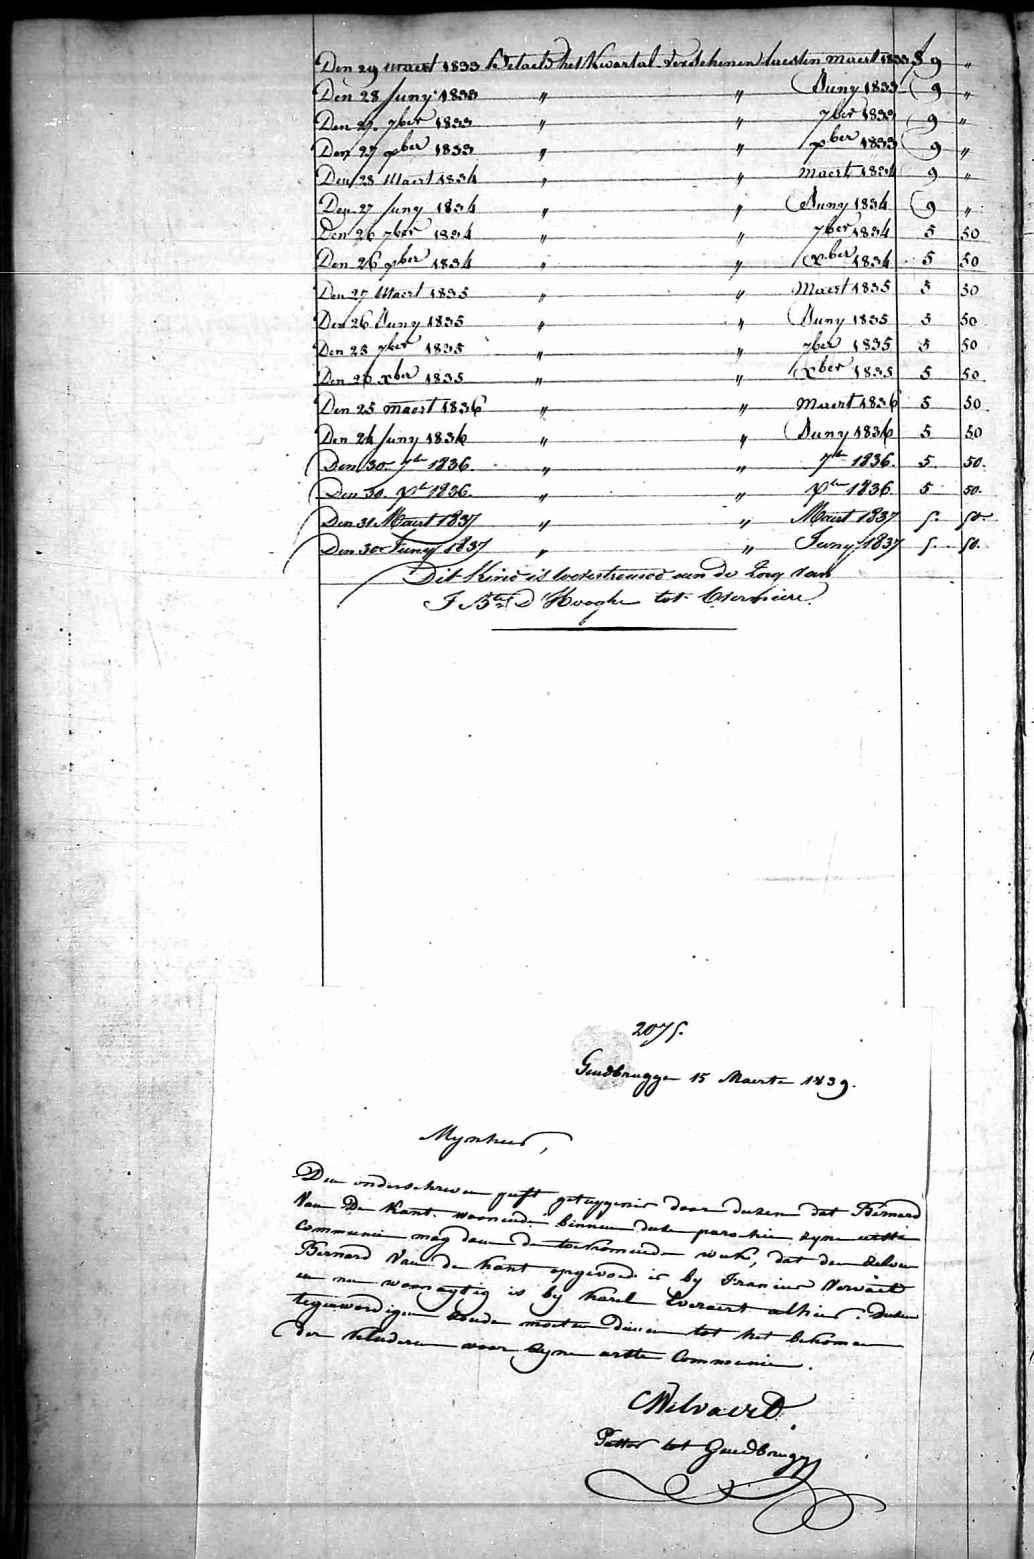 Den 29 Maert 1833 betaelt het Kwartal verschenen laesten maert 1833 f 9 "
Den 28 Juny 1833 " " Juny 1833 9 "
Den 27 7ber 1833 " " 7ber 1833 9 "
Den 27 xber 1833 " " xber 1833 9 "
Den 28 Maert 1834 " " maert 1834 9 "
Den 27 Juny 1834 " " Juny 1834 9 "
Den 26 7ber 1834 " " 7ber 1834 5 50
Den 26 xber 1834 " " xber 1834 5 50
Den 27 Maert 1835 " " Maert 1835 5 50
Den 26 Juny 1835 " " Juny 1835 5 50
Den 25 7ber 1835 " " 7ber 1835 5 50
Den 26 xber 1835 " " xber 1835 5 50
Den 25 maert 1836 " " Maert 1836 5 50
Den 24 Juny 1836 " " Juny 1836 5 50
Den 30 7br 1836 " " 7br 1836 5 50
Den 30 xbr 1836 " " xbr 1836 5 50
Den 31 Maert 1837 " " Maert 1837 5 50
Den 30 Juny 1837 " " Juny 1837 5 50
Dit Kind is toevertrouwd aen de Zorg van
J Bte D'Hooghe tot
2075.
Gendbrugge 15 Maerte 1839.
Mynheer,
Den onderschreven geeft getuygenis door dezen dat Bernard
Van De Kant. woonende binnen deze parochie zyne eerste
communie mag doen de toekomende weke, dat den zelven
Bernard Van de Kant opgevoed is by Francies Vervaet
en nu woonagtig is by Karel Everaert alhier. Dezen
tegenwoordigen zoude moeten dienen tot het bekomen
der kleederen voor zyne eerste Communie.
Welvaert
Pastor tot Gendbrugge